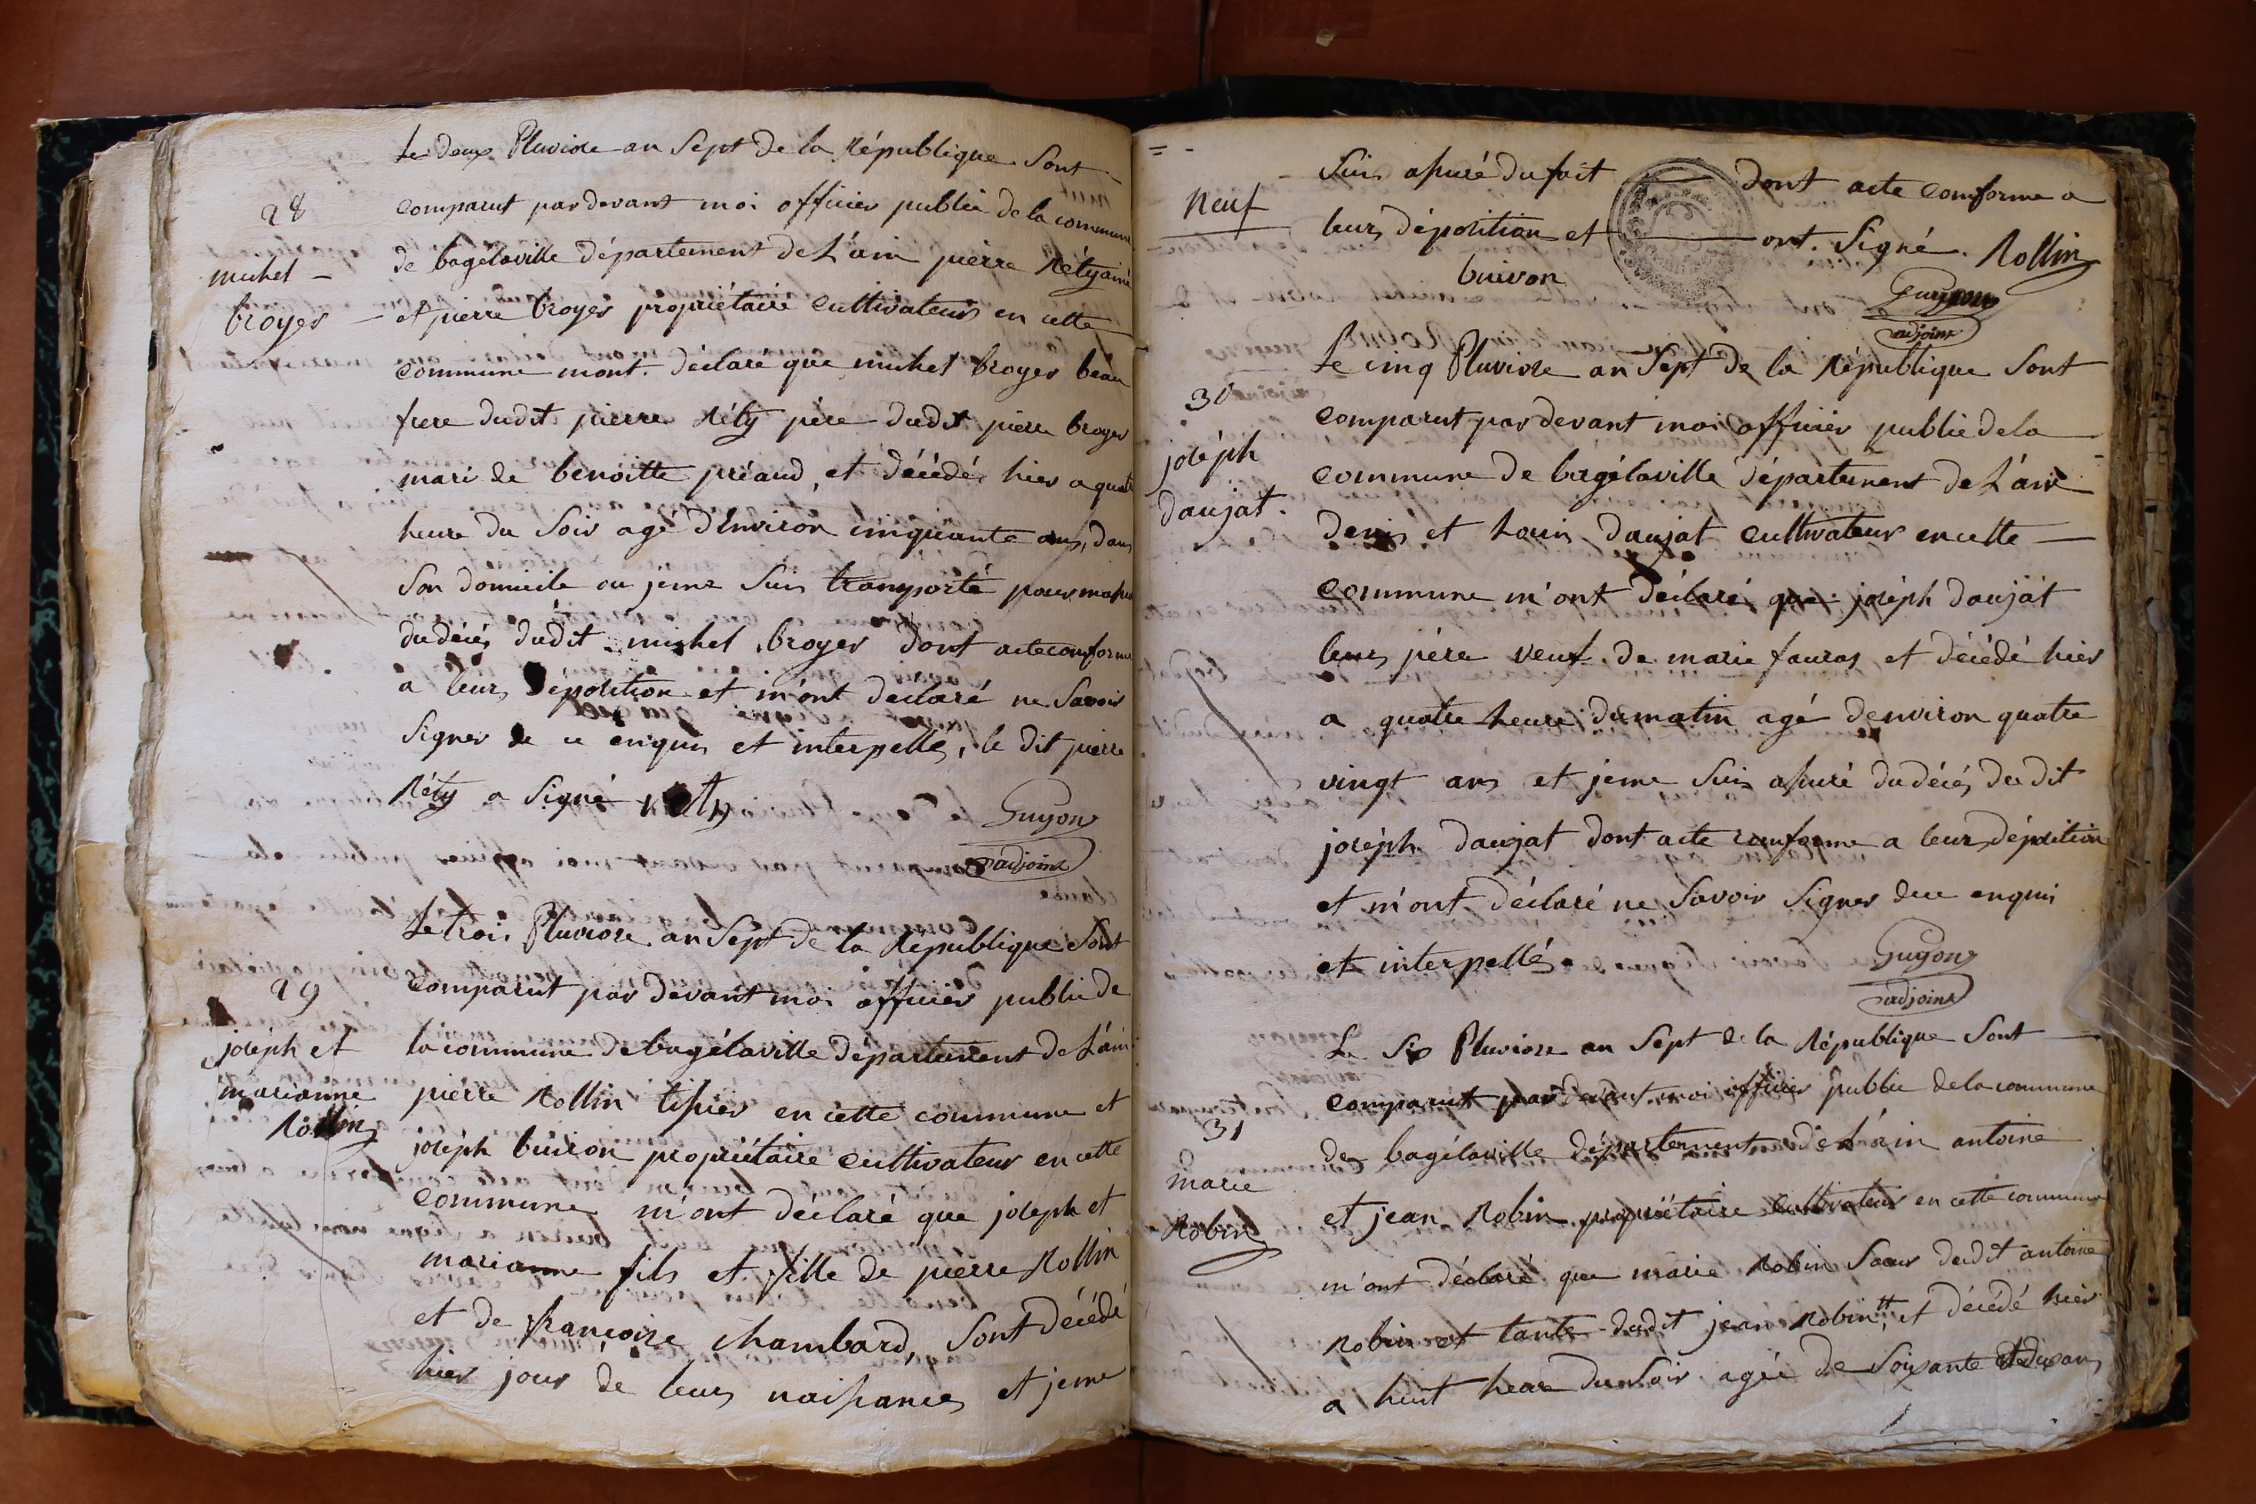 Le deux Pluviose an Sept de la République Sont
28
comparut par devant moi officier public de la commune
michel
de bagélaville département de L'ain pierre Réty ainé
broyer
et pierre broyer propriétaire cultivateurs en cette
commune mont déclaré que michel broyer beau
frere dudit pierre Réty père dudit pierre broyer
mari de benoitte préaud, et décédé hier a quatre
heure du Soir agé d'Environ cinquante ans, dans
Son domicile ou jeme Suis transporté pour massurer
du décés dudit michel broyer dont acte conforme
a leurs déposition et m'ont declaré ne Savoir
Signer de ce enquis et interpellés, le dit pierre
Réty a Signé Réty
Guyon
adjoint
Le trois Pluviose an Sept de la République Sont
29
comparut par devant moi officier public de
joséph et
la commune de bagélaville département de L'ain
marianne
pierre Rollin tissier en cette commune et
Rollin
joséph buiron propriétaire cultivateur en cette
commune m'ont déclaré que joséph et
marianne fils et fille de pierre Rollin
et de françoise chambard, Sont décédé
hier jour de leurs naissances et jeme
Neuf
Suis assuré du fait dont acte comforme a
leurs déposition et ont Signé. Rollin
buiron
Guyon
adjoint
Le cinq Pluviose an Sept de la République Sont
30
comparut par devant moi officier public de la
joséph
commune de bagélaville département de L'ain
daujat.
denis et Louis daujat cultivateur en cette
commune m'ont déclaré que joséph daujat
leurs père veuf de marie fauras et décédé hier
a quatre heure du matin agé denviron quatre
vingt ans et jeme Suis assuré du décés du dit
joséph daujat dont acte conforme a leurs déposition
et m'ont déclaré ne Savoir Signer de ce enquis
et interpellés.
Guyon
adjoint
Le Six Pluviose an Sept de la République Sont
comparut par devant moi officier public de la commune
31
de bagélaville département de L'ain antoine
marie
et jean Robin propriétaire cultivateur en cette commune
Robin
m'ont déclaré que marie Robin Sœur dudit antoine
Robin et tante dudit jean Robin, et décédé hier
a huit heure du Soir agée de Soixante et dix ans